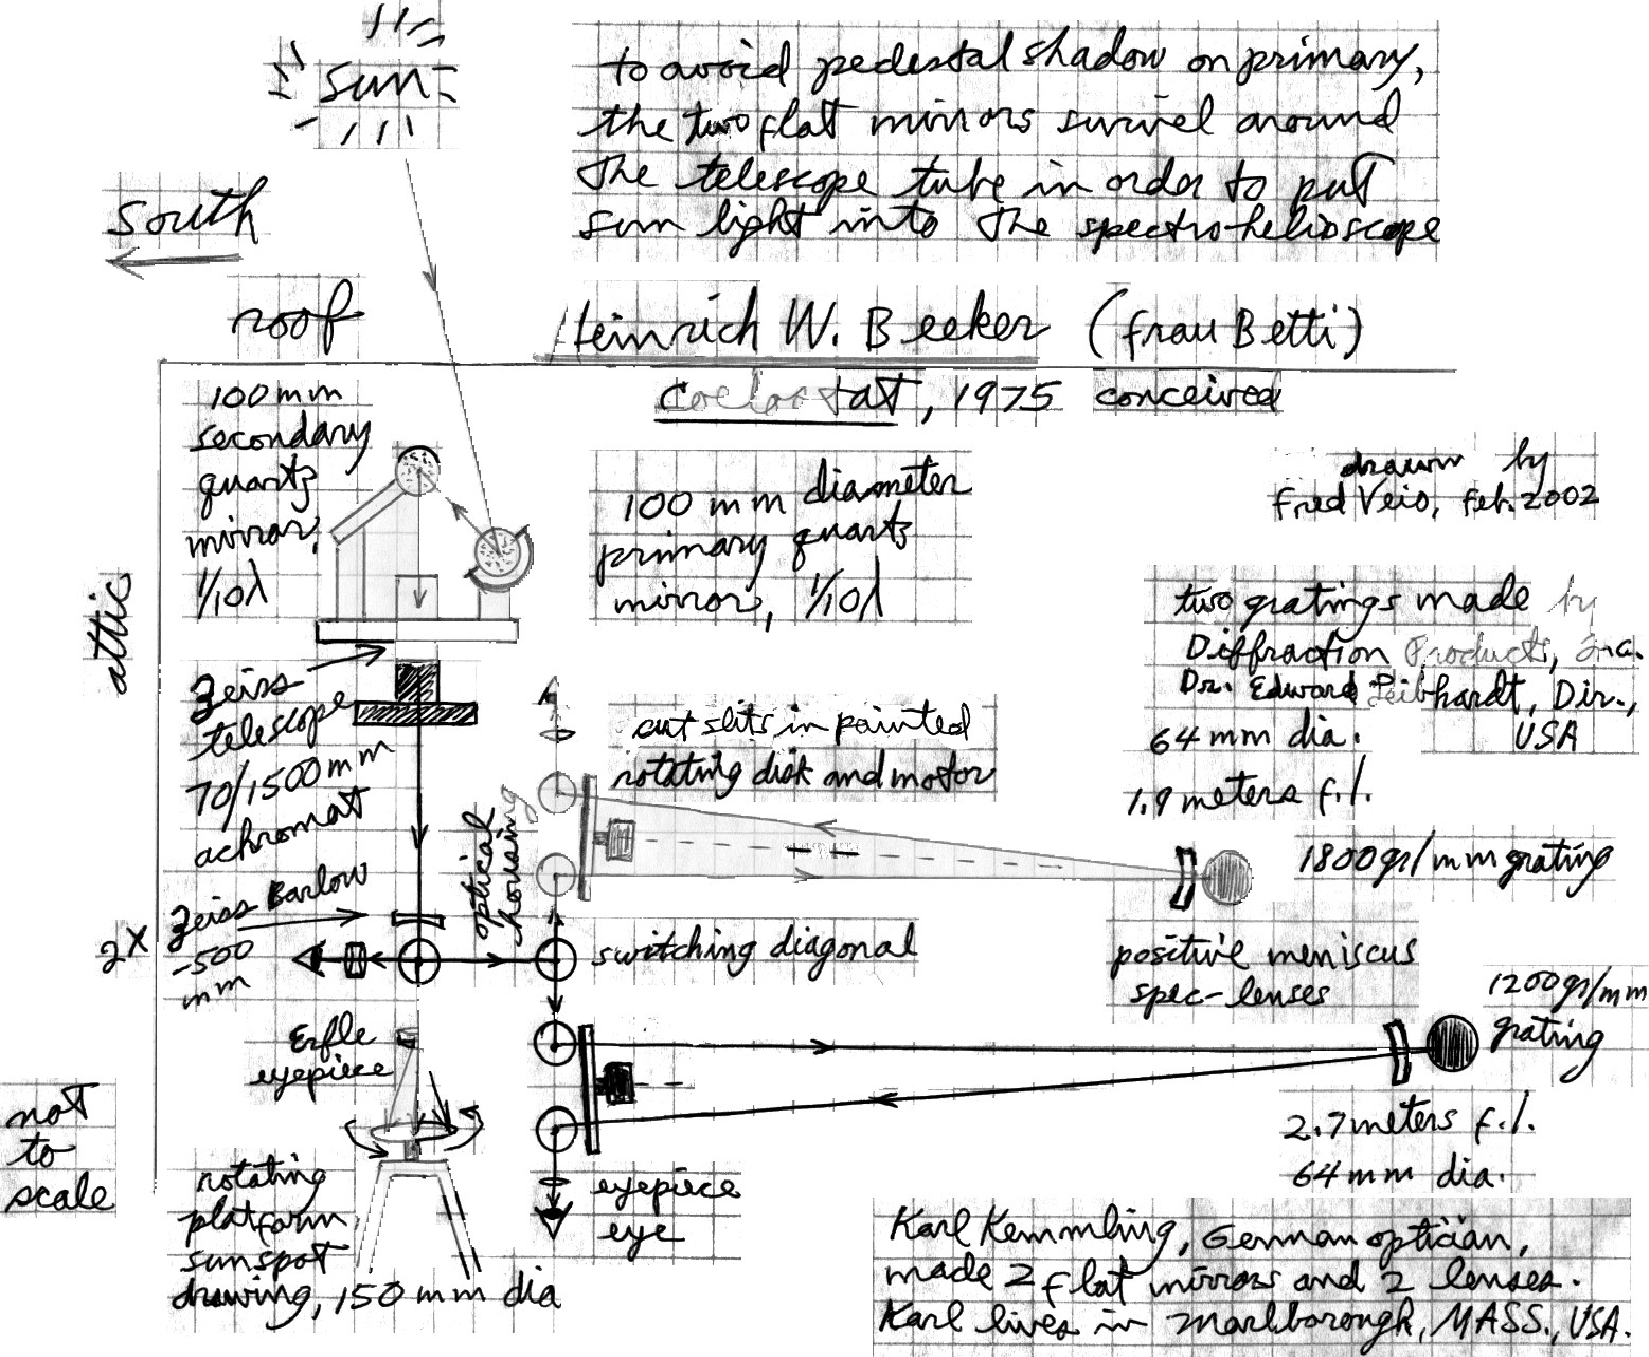 sun
to avoid pedestal shadow on primary,
the two flat mirrors swivel around
The telescope tube in order to put
sun light into The spectro-helioscope
South
roof
Heinrich W. Beeker (frau Betti)
Coelostat, 1975 conceived
drawn by
Fred Veio, Feb. 2002
100 mm
secondary
quartz
mirror,
1/10λ
100 mm diameter
primary quartz
mirror, 1/10λ
attic
two gratings made by
Diffraction Products, Inc.
Dr. Edward Leibhardt, Dir.,
USA
64 mm dia.
1.9 meters f.l.
Zeiss
telescope
70/1500 mm
achromat
cut slits in painted
rotating disk and motor
optical
housing
1800 gr/mm grating
Zeiss Barlow
2X
-500
mm
switching diagonal
positive meniscus
spec-lenses
1200 gr/mm
grating
Erfle
eyepiece
not
to
scale
2.7 meters f.l.
64 mm dia.
rotating
platform
sunspot
drawing, 150 mm dia
eyepiece
eye
Karl Kemmling, German optician,
made 2 flat mirrors and 2 lenses.
Karl lives in Marlborough, MASS., USA.